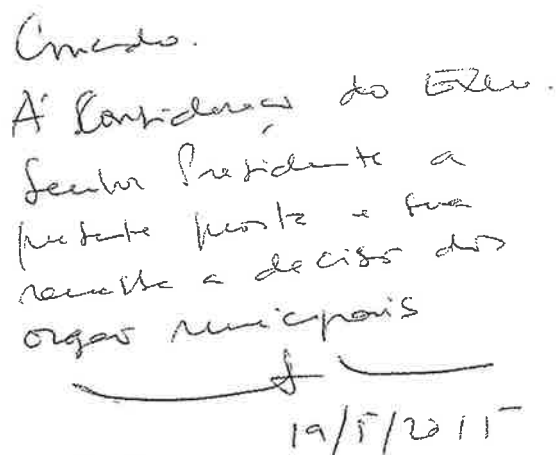 Concordo.
À Consideração do Exmo.
Senhor Presidente a
presente proposta e sua
remessa a decisão dos
orgãos municipais
19/5/2015